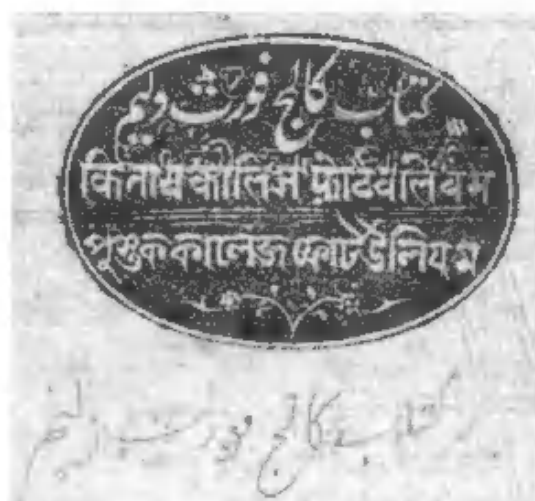 کتاب کالج فورٹ ولیم
किताब कालिज फ़ोर्टवलियम
পুস্তক কালেজ ফোর্ট উলিয়ম
کتاب کالج فورت ولیم